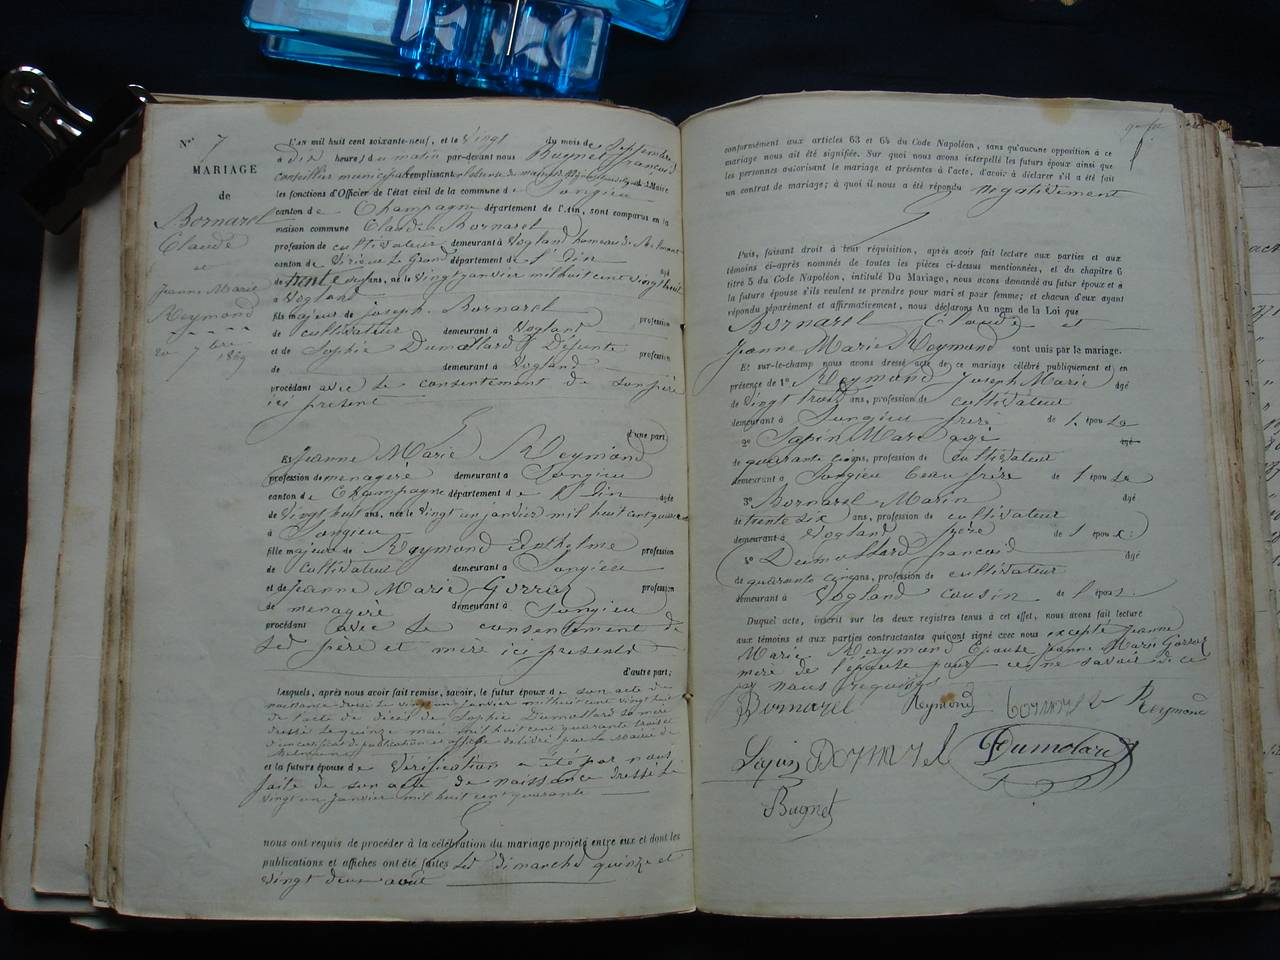 Nos 7
MARIAGE
de
Bornarel
Claude
et
Jeanne Marie
Reymond
20 7bre
1869
L'an mil huit cent soixante-neuf, et le vingt du mois de Septembre
à dix heures du matin par-devant nous Bugnet François
conseiller municipal remplissant
les fonctions d'Officier de l'état civil de la commune de Songieu
canton de Champagne département de l'Ain, sont comparus en la
maison commune Claude Bornarel
profession de cultivateur demeurant à Vogland hameau de
canton de Virieu le Grand département de l'Ain âgé
de trente ans, né le vingt janvier mil huit cent vingt huit
à Vogland
fils majeur de joseph Bornarel profession
de cultivateur demeurant à Vogland
et de Sophie Dumollard Défunte profession
de demeurant à Vogland
procédant avec le consentement de son père
ici présent
d'une part;
Et Jeanne Marie Reymond
profession de menagère demeurant à Songieu
canton de Champagne département de l'Ain âgée
de vingt huit ans, née le vingt un janvier mil huit cent quarante
à Songieu
fille majeure de Reymond Anthelme profession
de cultivateur demeurant à Songieu
et de Jeanne Marie Gorraz profession
de menagère demeurant à Songieu
procédant avec le consentement de
ses père et mère ici présents
d'autre part;
Lesquels, après nous avoir fait remise, savoir, le futur époux de son acte de
naissance dressé le vingt un janvier mil huit cent vingt huit
de l'acte de décès de Sophie Dumollard sa mère
dressé le quinze mai mil huit cent quarante trois et
d'un certificat de publication et affiche délivré par le Maire de
et la future épouse de vérification a été par nous
faite de son acte de naissance dressé le
vingt un janvier mil huit cent quarante
nous ont requis de procéder à la célébration du mariage projeté entre eux et dont les
publications et affiches ont été faites les dimanches quinze et
vingt deux août
conformément aux articles 63 et 64 du Code Napoléon, sans qu'aucune opposition à ce
mariage nous ait été signifiée. Sur quoi nous avons interpellé les futurs époux ainsi que
les personnes autorisant le mariage et présentes à l'acte, d'avoir à déclarer s'il a été fait
un contrat de mariage; à quoi il nous a été répondu négativement
Puis, faisant droit à leur réquisition, après avoir fait lecture aux parties et aux
témoins ci-après nommés de toutes les pièces ci-dessus mentionnées, et du chapitre 6
titre 5 du Code Napoléon, intitulé Du Mariage, nous avons demandé au futur époux et à
la future épouse s'ils veulent se prendre pour mari et pour femme; et chacun d'eux ayant
répondu séparément et affirmativement, nous déclarons Au nom de la Loi que
Bornarel Claude et
Jeanne Marie Reymond sont unis par le mariage.
Et sur-le-champ nous avons dressé acte de ce mariage célébré publiquement et en
présence de 1° Reymond Joseph Marie âgé
de vingt trois ans, profession de cultivateur
demeurant à Songieu frère de l'épouse
2° Sapin Marc âgé
de quarante cinq ans, profession de cultivateur
demeurant à Songieu beau frère de l'épouse
3° Bornarel Marin âgé
de trente six ans, profession de cultivateur
demeurant à Vogland frère de l'époux
4° Dumollard françois âgé
de quarante cinq ans, profession de cultivateur
demeurant à Vogland cousin de l'époux
Duquel acte, inscrit sur les deux registres tenus à cet effet, nous avons fait lecture
aux témoins et aux parties contractantes qui ont signé avec nous excepté Jeanne
Marie Reymond Epouse Jeanne Marie Gorraz
mère de l'épouse pour ne savoir de ce
par nous requises
Bornarel Reymond bornarel Reymond
Sapin Bornarel Dumolard
Bugnet